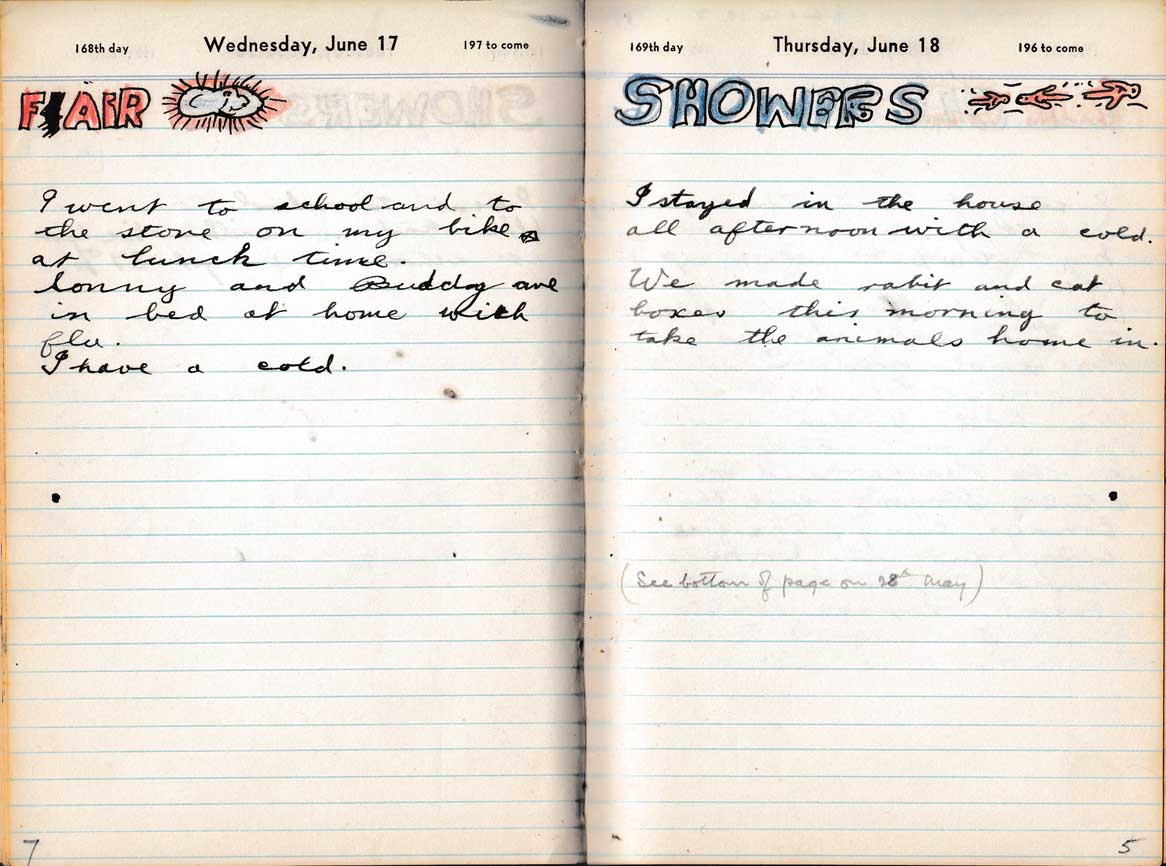 168th day Wednesday, June 17 197 to come
FAIR
I went to school and to
the store on my bike
at lunch time.
and Buddy are
in bed at home with
flu.
I have a cold.
7
169th day Thursday, June 18 196 to come
SHOWERS
I stayed in the house
all afternoon with a cold.
We made rabit and cat
boxes this morning to
take the animals home in.
(See bottom of page on 28th May)
5